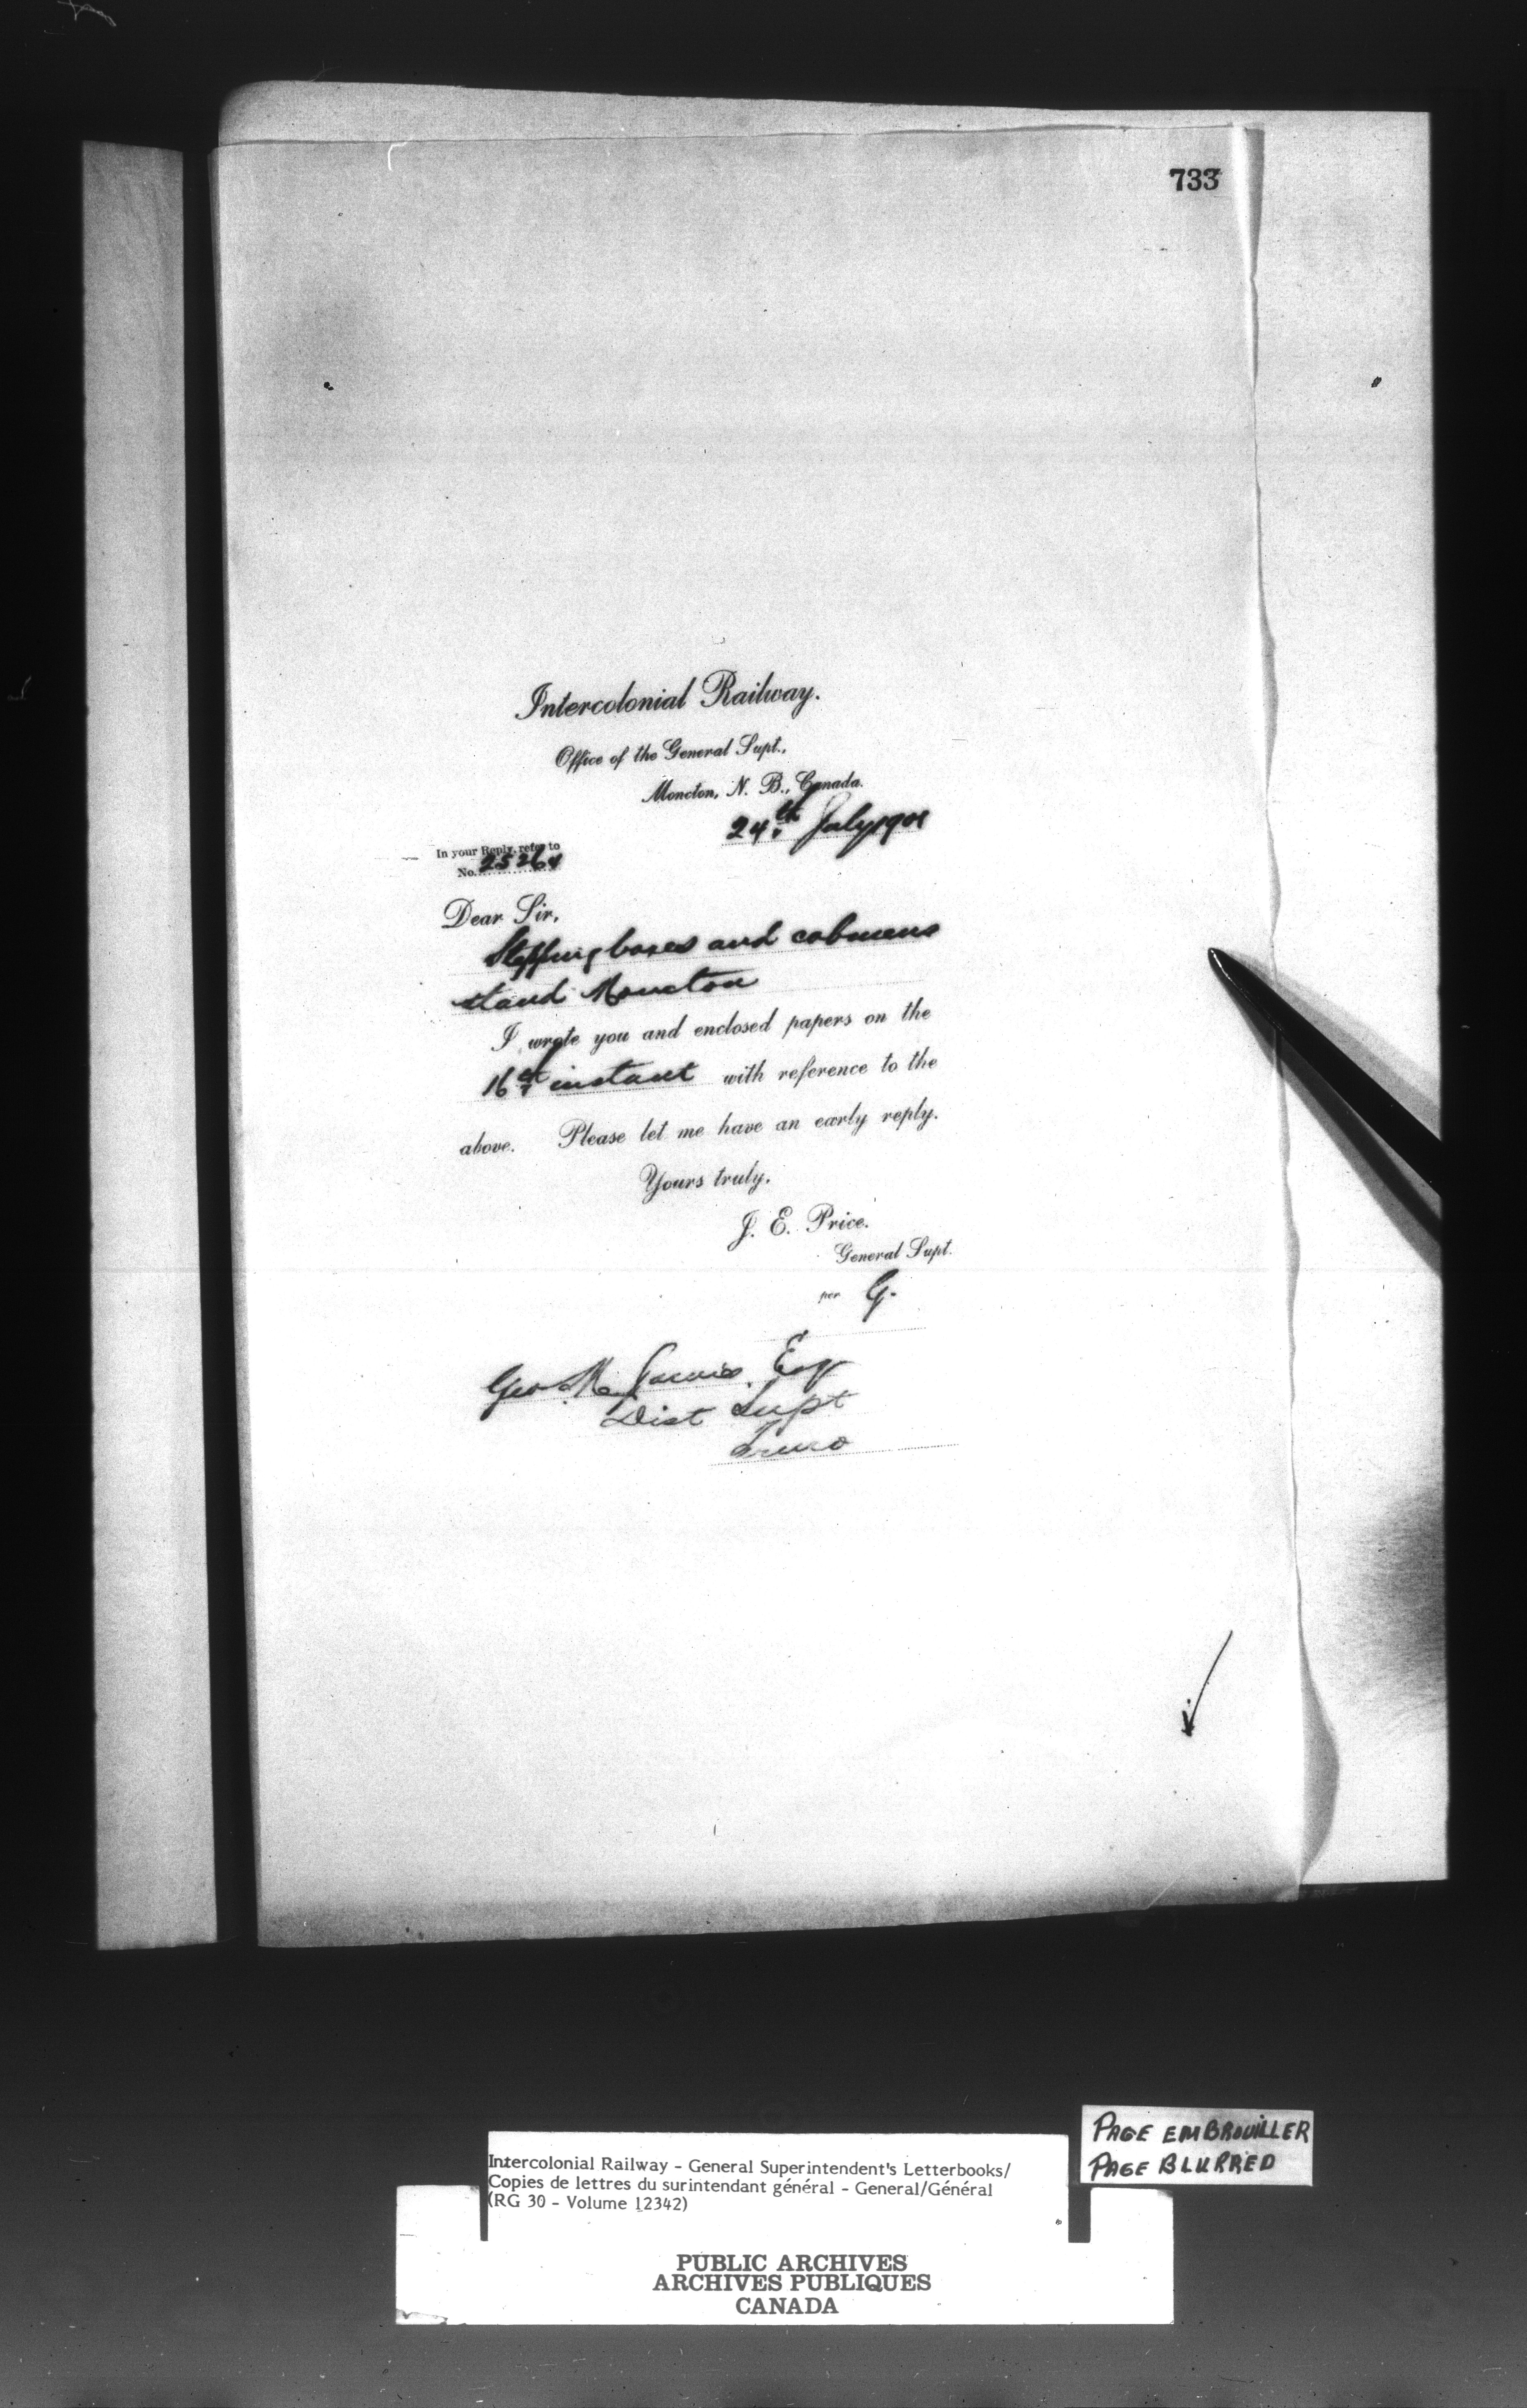 733
Intercolonial Railway.
Office of the General Supt.,
Moncton, N. B., Canada.
24th July 1901
In your Reply, refer to
No. 25264
Dear Sir,
Stepping boxes and cabmens
stand Moncton
I wrote you and enclosed papers on the
16th instant with reference to the
above. Please let me have an early reply.
Yours truly,
J. E. Price.
General Supt.
per G.
Geo M Jarvis, Esq
Dist Supt
Truro
PAGE EMBROUILLER
PAGE BLURRED
Intercolonial Railway - General Superintendent's Letterbooks/
Copies de lettres du surintendant général - General/Général
(RG 30 - Volume 12342)
PUBLIC ARCHIVES
ARCHIVES PUBLIQUES
CANADA